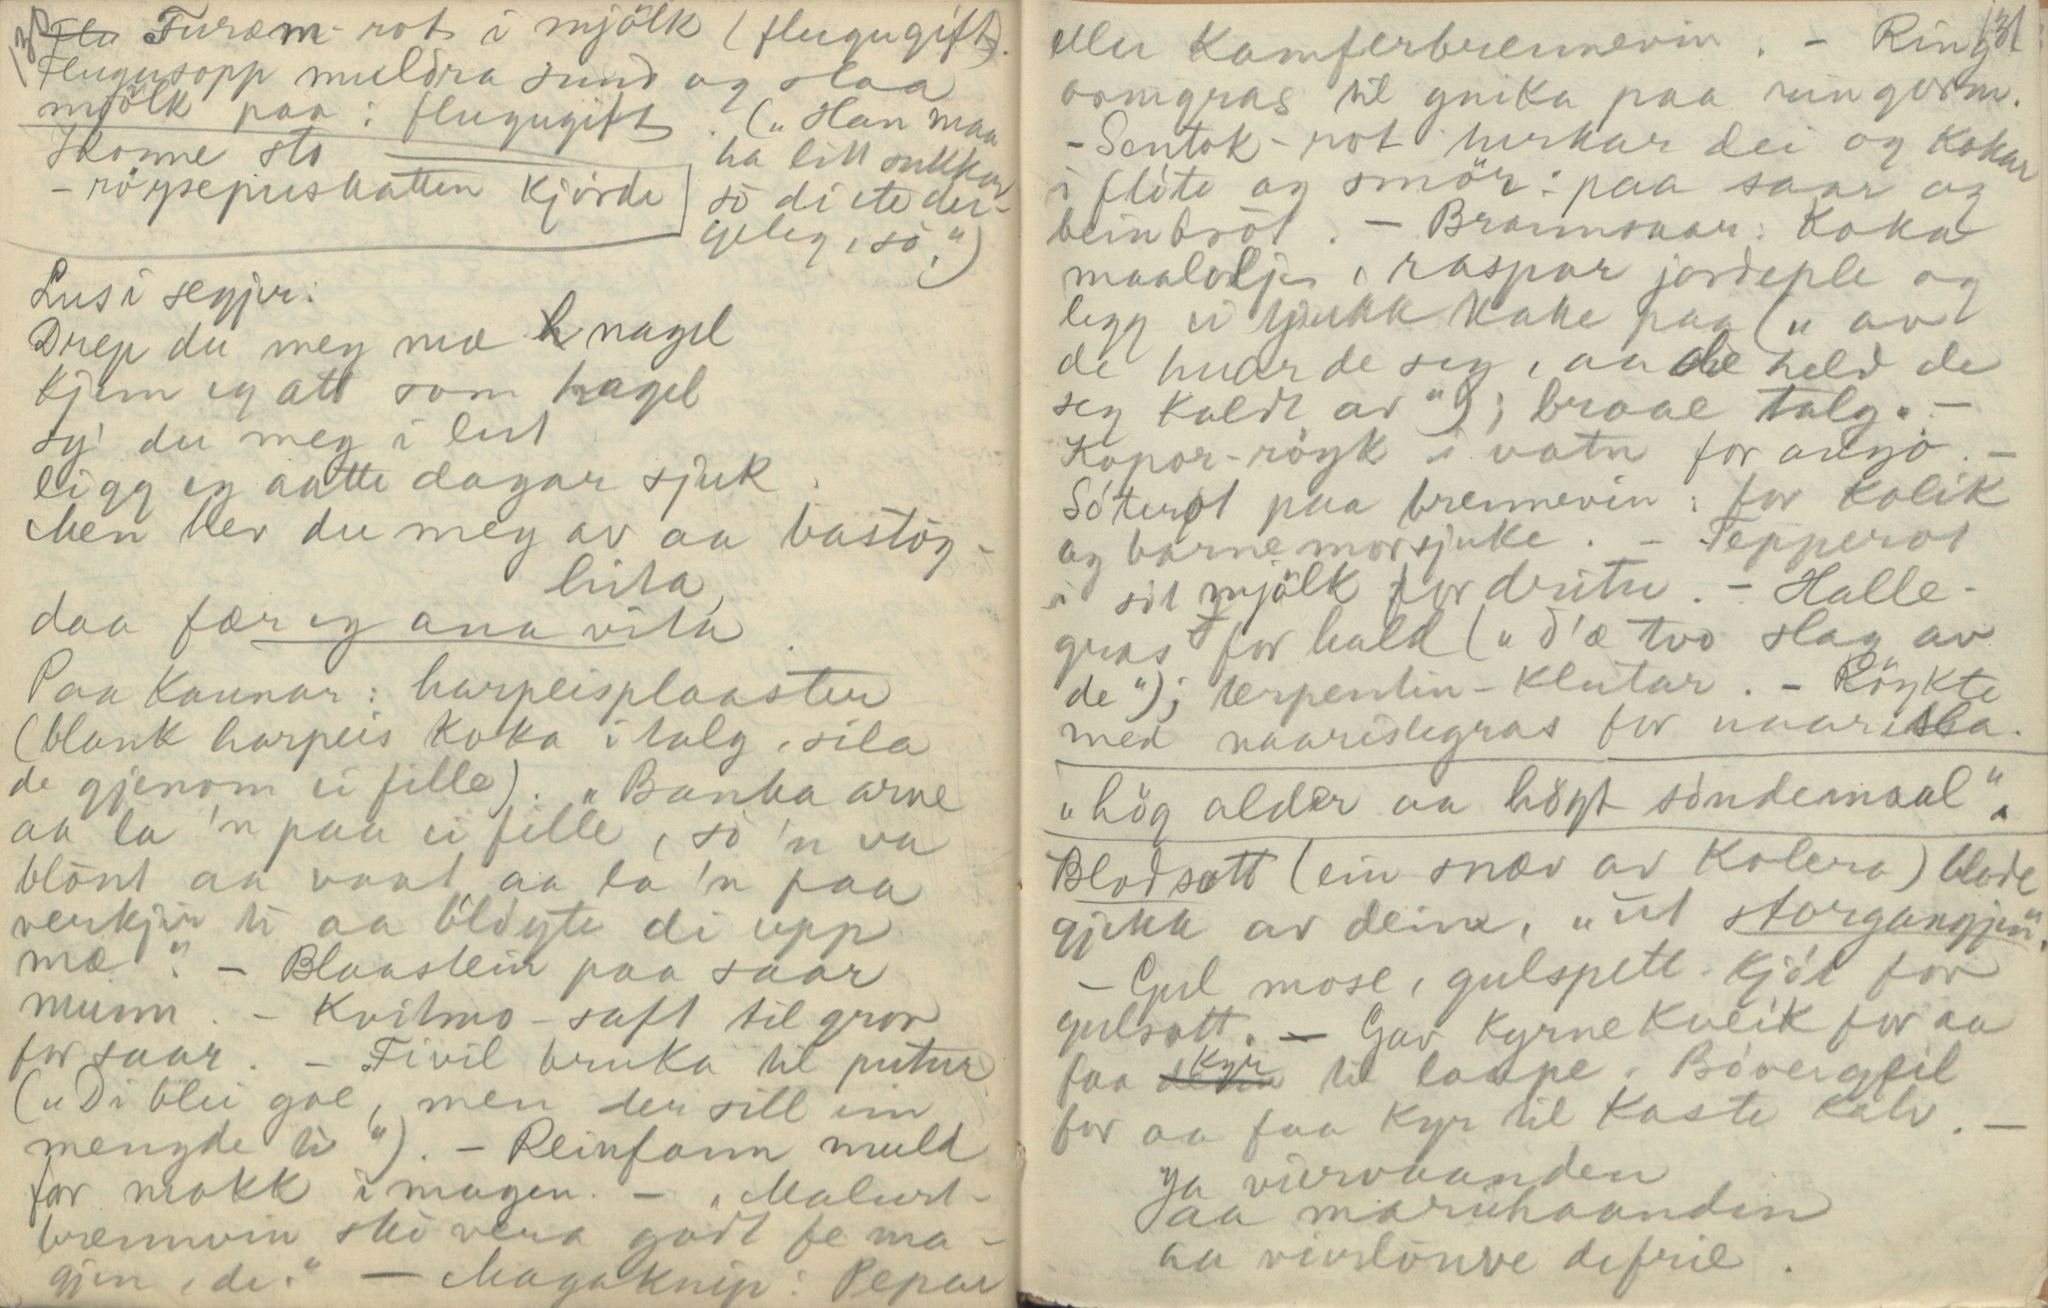 130
Furæm-rot i mjölk (flugugift).
Flugusopp muldra sund og slaa
mjölk paa: flugugift. („Han maa
ha litt sukker
so di ete dei-
geleg, so,")
Konne sto
- röysepiishatten kjörde
Lusi segjer:
Drep du meg mæ nagel
kjem eg att som hagel
sy' du meg i lut
ligg eg aatte dagar sjuk.
Men hev du meg av aa bastög-
hita,
daa fær eg ana vita.
Paa kaunar: harpeisplaaster
(blank harpeis koka i talg, sila
de gjenom ei fille). „Banka arve
aa la 'n paa ei fille, so 'n va
blöut aa vaat, aa la 'n paa
verkjen ti aa blöyte di upp
mæ." - Blaastein paa saar
munn. - Kvitmo-saft til grov
for saar. - Fivil bruka til putur
(„Di blei goe, men der sill ein
mengde ti"). - Reinfann muld
for makk i magen. - „Malurt-
brennevin sko vera godt fe ma-
gjen, de." - Magaknip: Pepar
131
eller kamferbrennevin. - Ring-
ormgras til gnika paa ringorm.
- Sentok-rot turkar dei og kokar
i flöte og smör: paa saar og
beinbrot. - Brannsaar: Koka
maalolje, raspar jordeple og
legg ei tjukk kake paa („av
de huarde seg, aa de held de
seg kaldt av"); braae talg. -
Kopar-röyk i vatn for augo. -
Söterot paa brennevin: for kolik
og barnemorsjuke. - Tepperot
i söt mjölk for drit. - Halle-
gras for hald („d'æ tvo slag av
de"); terpentin-klutar. - Röykte
med naaristegras for naarista.
„hög alder aa högt söndemaal".
Blodsott (ein snæv av kolera) blode
gjekk av deim, „ut storgangjen".
- Gul mose, gulspett-kjöt for
gulsott. - Gav kyrne kveik for aa
faa kyr til laupe. Bövergjeil
for aa faa kyr til kaste kalv. -
Ja viervaanden
aa mariehaanden
aa vivelouve defrie.